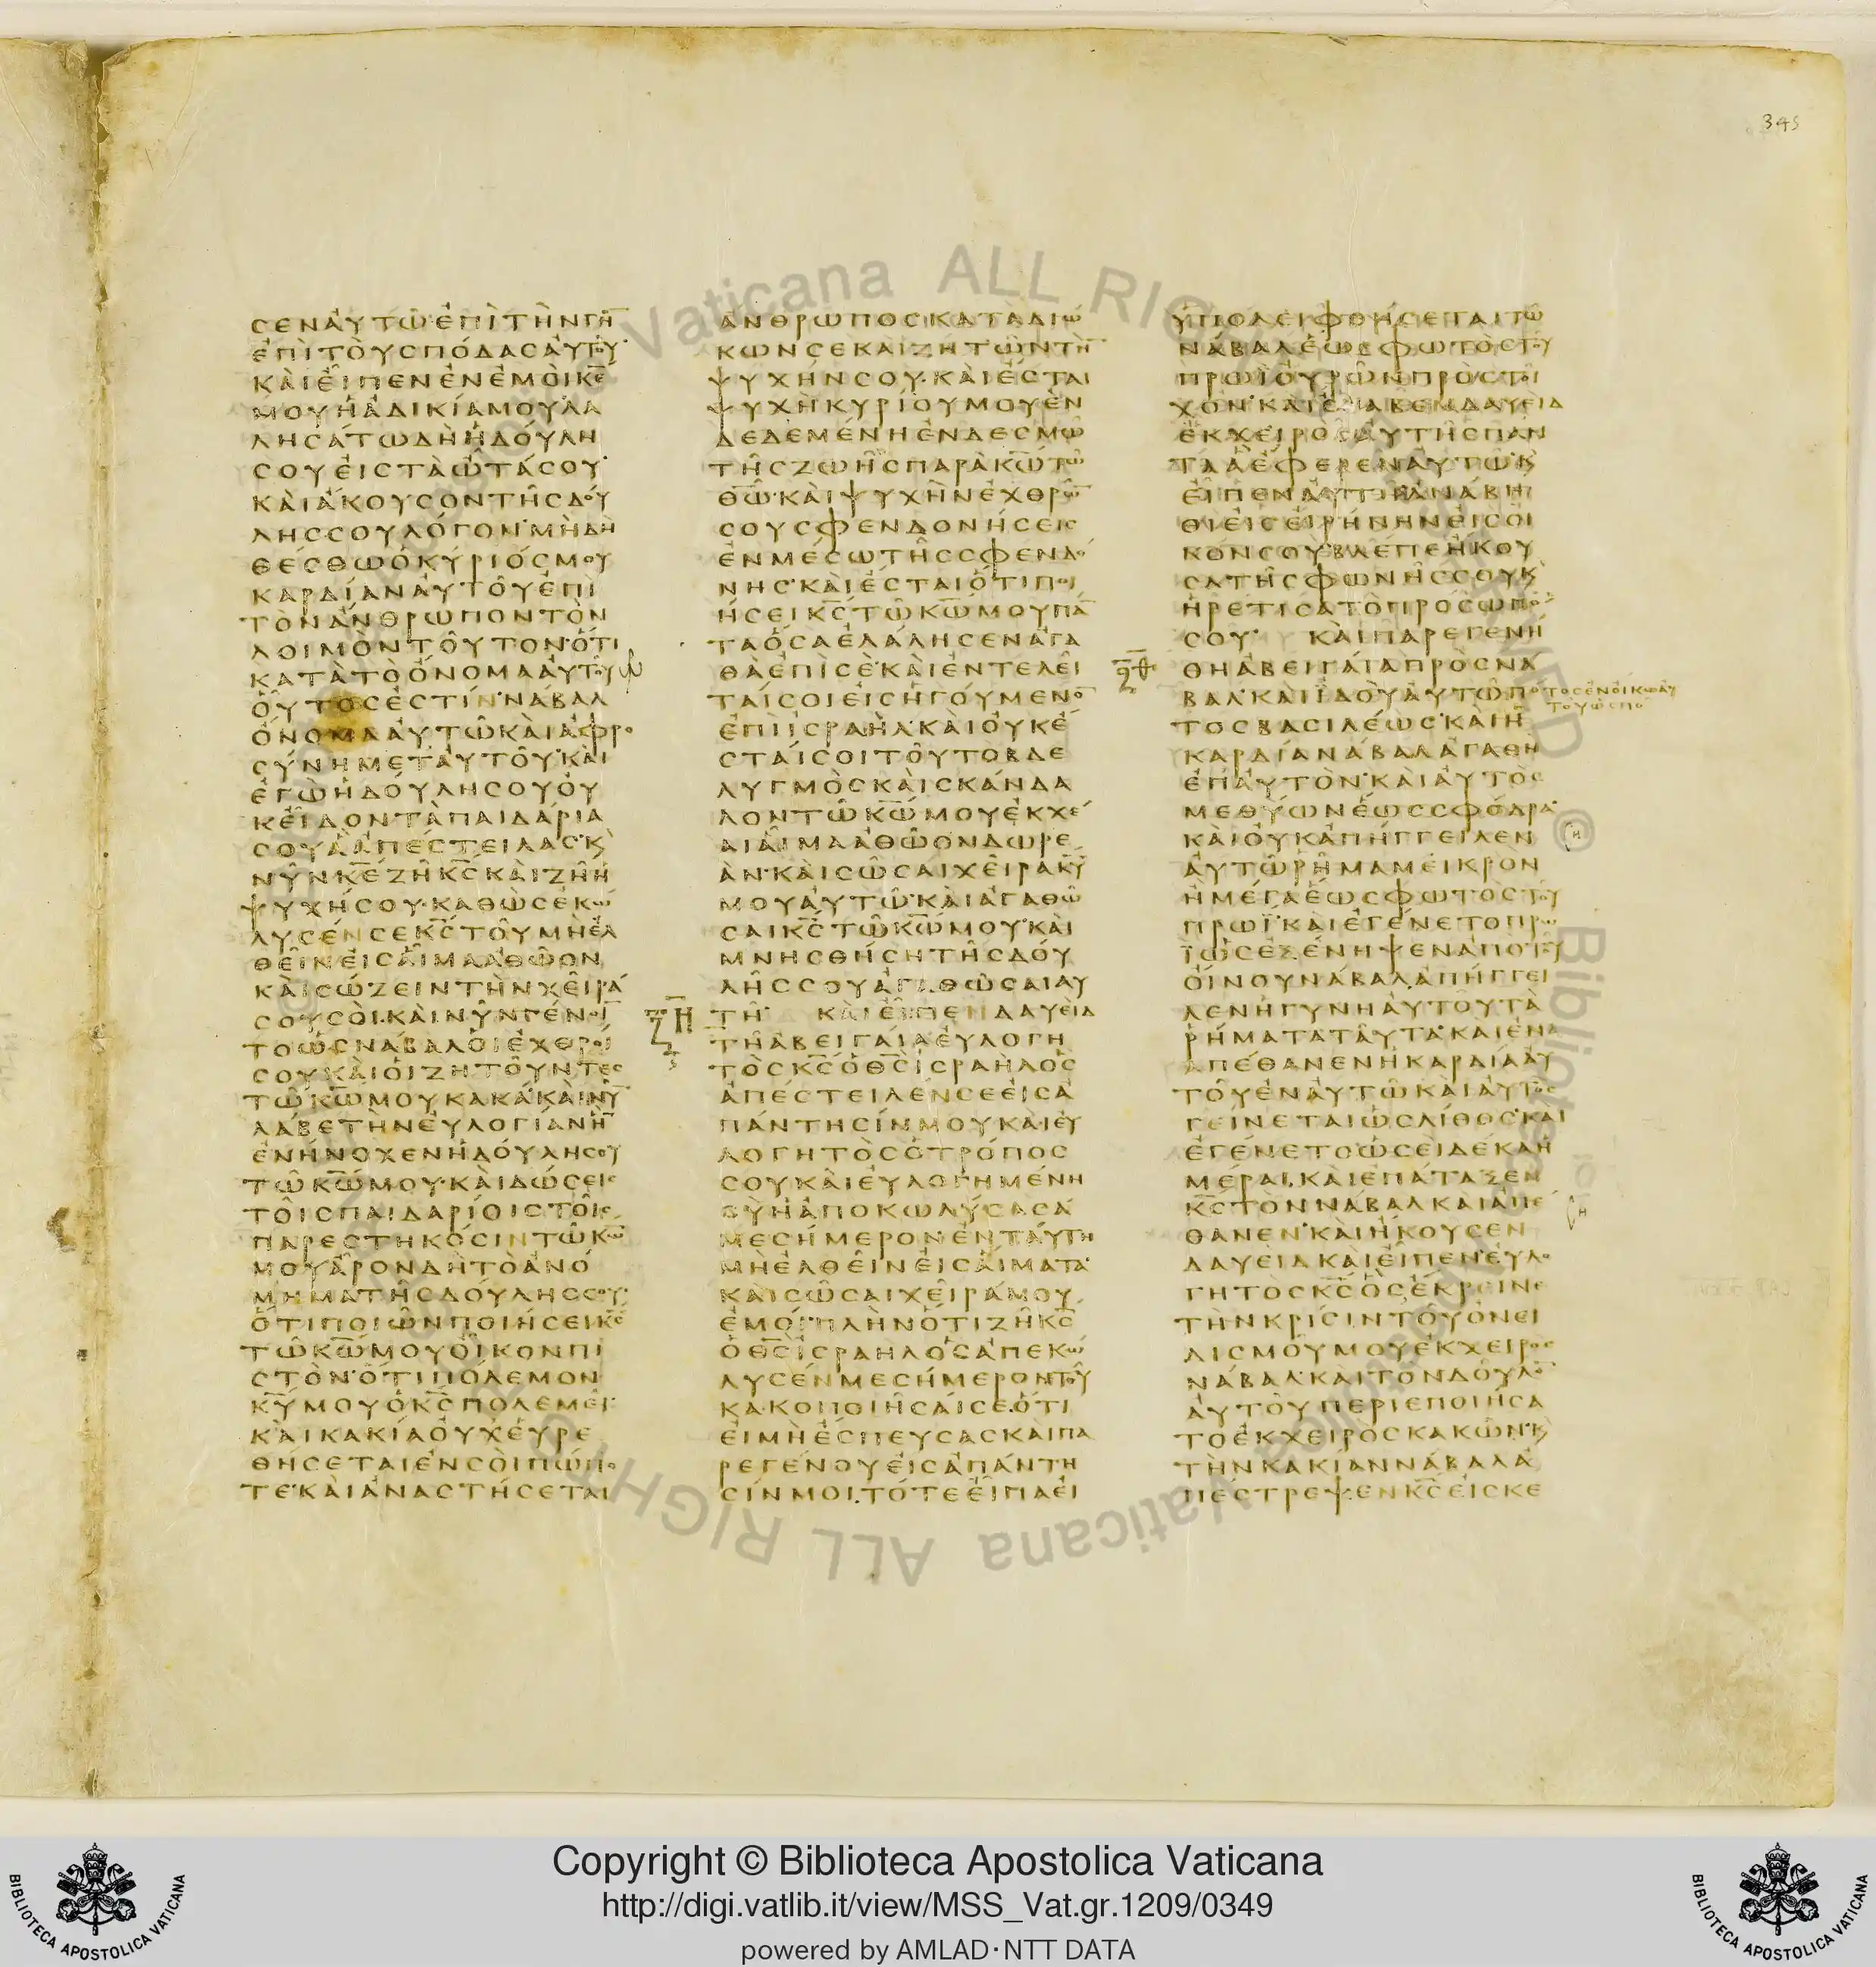 345
ϹΕΝΑΥΤΩΕΠΙΤΗΝΓΗ̅
ΕΠΙΤΟΥϹΠΟΔΑϹΑΥΤΟΥ
ΚΑΙΕΙΠΕΝΕΝΕΜΟΙΚ̅Ε̅
ΜΟΥΗΑΔΙΚΙΑΜΟΥΛΑ
ΛΗϹΑΤΩΔΗΗΔΟΥΛΗ
ϹΟΥΕΙϹΤΑΩΤΑϹΟΥ
ΚΑΙΑΚΟΥϹΟΝΤΗϹΔΟΥ
ΛΗϹϹΟΥΛΟΓΟΝ·ΜΗΔΗ
ΘΕϹΘΩΟΚΥΡΙΟϹΜΟΥ
ΚΑΡΔΙΑΝΑΥΤΟΥΕΠΙ
ΤΟΝΑΝΘΡΩΠΟΝΤΟΝ
ΛΟΙΜΟΝΤΟΥΤΟΝ·ΟΤΙ
ΚΑΤΑΤΟΟΝΟΜΑΑΥΤΟΥ
ΟΥΤΟϹΕϹΤΙΝ·ΝΑΒΑΛ
ΟΝΟΜΑΑΥΤΩΚΑΙΑΦΡΟ
ϹΥΝΗΜΕΤΑΥΤΟΥ·ΚΑΙ
ΕΓΩΗΔΟΥΛΗϹΟΥΟΥ
ΚΕΙΔΟΝΤΑΠΑΙΔΑΡΙΑ
ϹΟΥΑΑΠΕϹΤΕΙΛΑϹ·Κ
ΝΥΝΚ̅Ε̅ΖΗΚ̅Ϲ̅ΚΑΙΖΗΗ
ΨΥΧΗϹΟΥ·ΚΑΘΩϹΕΚΩ
ΛΥϹΕΝϹΕΚ̅Ϲ̅ΤΟΥΜΗΕΛ
ΘΕΙΝΕΙϹΑΙΜΑΑΘΩΟΝ
ΚΑΙϹΩΖΕΙΝΤΗΝΧΕΙΡΑ
ϹΟΥϹΟΙ·ΚΑΙΝΥΝΓΕΝΟΙ̅
ΤΟΩϹΝΑΒΑΛΟΙΕΧΘΡΟΙ
ϹΟΥΚΑΙΟΙΖΗΤΟΥΝΤΕϹ
ΤΩΚ̅Ω̅ΜΟΥΚΑΚΑ·ΚΑΙΝΥ̅
ΛΑΒΕΤΗΝΕΥΛΟΓΙΑΝΗ̅
ΕΝΗΝΟΧΕΝΗΔΟΥΛΗϹΟΥ
ΤΩΚ̅Ω̅ΜΟΥ·ΚΑΙΔΩϹΕΙϹ
ΤΟΙϹΠΑΙΔΑΡΙΟΙϹΤΟΙϹ
ΠΑΡΕϹΤΗΚΟϹΙΝΤΩΚ̅Ω̅
ΜΟΥΑΡΟΝΔΗΤΟΑΝΟ
ΜΗΜΑΤΗϹΔΟΥΛΗϹϹΟΥ·
ΟΤΙΠΟΙΩΝΠΟΙΗϹΕΙΚ̅Ϲ̅
ΤΩΚ̅Ω̅ΜΟΥΟΙΚΟΝΠΙ
ϹΤΟΝ·ΟΤΙΠΟΛΕΜΟΝ
Κ̅Υ̅ΜΟΥΟΚ̅Ϲ̅ΠΟΛΕΜΕΙ·
ΚΑΙΚΑΚΙΑΟΥΧΕΥΡΕ
ΘΗϹΕΤΑΙΕΝϹΟΙΠΩΠΟ
ΤΕ·ΚΑΙΑΝΑϹΤΗϹΕΤΑΙ
ΑΝΘΡΩΠΟϹΚΑΤΑΔΙΩ
ΚΩΝϹΕΚΑΙΖΗΤΩΝΤΗ̅
ΨΥΧΗΝϹΟΥ·ΚΑΙΕϹΤΑΙ
ΨΥΧΗΚΥΡΙΟΥΜΟΥΕΝ
ΔΕΔΕΜΕΝΗΕΝΔΕϹΜΩ
ΤΗϹΖΩΗϹΠΑΡΑΚ̅Ω̅ΤΩ
Θ̅Ω̅·ΚΑΙΨΥΧΗΝΕΧΘΡΩ̅
ϹΟΥϹΦΕΝΔΟΝΗϹΕΙϹ
ΕΝΜΕϹΩΤΗϹϹΦΕΝΔΟ
ΝΗϹ·ΚΑΙΕϹΤΑΙΟΤΙΠΟΙ
ΗϹΕΙΚ̅Ϲ̅ΤΩΚ̅Ω̅ΜΟΥΠΑ̅
ΤΑΟϹΑΕΛΑΛΗϹΕΝΑΓΑ
ΘΑΕΠΙϹΕ·ΚΑΙΕΝΤΕΛΕΙ
ΤΑΙϹΟΙΕΙϹΗΓΟΥΜΕΝΟ̅
ΕΠΙΙϹΡΑΗΛ·ΚΑΙΟΥΚΕ
ϹΤΑΙϹΟΙΤΟΥΤΟΒΔΕ
ΛΥΓΜΟϹΚΑΙϹΚΑΝΔΑ
ΛΟΝΤΩΚ̅Ω̅ΜΟΥΕΚΧΕ
ΑΙΑΙΜΑΑΘΩΟΝΔΩΡΕ
ΑΝ·ΚΑΙϹΩϹΑΙΧΕΙΡΑΚ̅Υ̅
ΜΟΥΑΥΤΩ·ΚΑΙΑΓΑΘΩ
ϹΑΙΚ̅Ϲ̅ΤΩΚ̅Ω̅ΜΟΥ·ΚΑΙ
ΜΝΗϹΘΗϹΗΤΗϹΔΟΥ
ΛΗϹϹΟΥΑΓΑΘΩϹΑΙΑΥ
ϞΗ
ΤΗ· ΚΑΙΕΙΠΕΝΔΑΥΕΙΔ
ΤΗΑΒΕΙΓΑΙΑΕΥΛΟΓΗ
ΤΟϹΚ̅Ϲ̅ΟΘ̅Ϲ̅ΙϹΡΑΗΛΟϹ
ΑΠΕϹΤΕΙΛΕΝϹΕΕΙϹΑ
ΠΑΝΤΗϹΙΝΜΟΥΚΑΙΕΥ
ΛΟΓΗΤΟϹΟΤΡΟΠΟϹ
ϹΟΥΚΑΙΕΥΛΟΓΗΜΕΝΗ
ϹΥΗΑΠΟΚΩΛΥϹΑϹΑ
ΜΕϹΗΜΕΡΟΝΕΝΤΑΥΤΗ
ΜΗΕΛΘΕΙΝΕΙϹΑΙΜΑΤΑ·
ΚΑΙϹΩϹΑΙΧΕΙΡΑΜΟΥ
ΕΜΟΙ·ΠΛΗΝΟΤΙΖΗΚ̅Ϲ̅
ΟΘ̅Ϲ̅ΙϹΡΑΗΛΟϹΑΠΕΚΩ
ΛΥϹΕΝΜΕϹΗΜΕΡΟΝΤΟΥ
ΚΑΚΟΠΟΙΗϹΑΙϹΕ·ΟΤΙ
ΕΙΜΗΕϹΠΕΥϹΑϹΚΑΙΠΑ
ΡΕΓΕΝΟΥΕΙϹΑΠΑΝΤΗ
ϹΙΝΜΟΙ·ΤΟΤΕΕΙΠΑΕΙ
ΥΠΟΛΕΙΦΘΗϹΕΤΑΙΤΩ
ΝΑΒΑΛΕΩϹΦΩΤΟϹΤΟΥ
ΠΡΩΙΟΥΡΩΝΠΡΟϹΤΟΙ
ΧΟΝ·ΚΑΙΕΛΑΒΕΝΔΑΥΕΙΔ
ΕΚΧΕΙΡΟϹΑΥΤΗϹΠΑΝ
ΤΑΑΕΦΕΡΕΝΑΥΤΩ·Κ
ΕΙΠΕΝΑΥΤΗΑΝΑΒΗ
ΘΙΕΙϹΕΙΡΗΝΗΝΕΙϹΟΙ
ΚΟΝϹΟΥ·ΒΛΕΠΕΗΚΟΥ
ϹΑΤΗϹΦΩΝΗϹϹΟΥΚ
ΗΡΕΤΙϹΑΤΟΠΡΟϹΩΠΟ̅
ϹΟΥ· ΚΑΙΠΑΡΕΓΕΝΗ
ϞΘ
ΘΗΑΒΕΙΓΑΙΑΠΡΟϹΝΑ
ΒΑΛ·ΚΑΙΙΔΟΥΑΥΤΩΠΟ
ΤΟϹΕΝΟΙΚΩΑΥ
ΤΟΥΩϹΠΟ
ΤΟϹΒΑϹΙΛΕΩϹ·ΚΑΙΗ
ΚΑΡΔΙΑΝΑΒΑΛΑΓΑΘΗ
ΕΠΑΥΤΟΝ·ΚΑΙΑΥΤΟϹ
ΜΕΘΥΩΝΕΩϹϹΦΟΔΡΑ·
ΚΑΙΟΥΚΑΠΗΓΓΕΙΛΕΝ
ΑΥΤΩΡΗΜΑΜΕΙΚΡΟΝ
ΗΜΕΓΑΕΩϹΦΩΤΟϹΤΟΥ
ΠΡΩΙ·ΚΑΙΕΓΕΝΕΤΟΠΡΩ
ΙΩϹΕΞΕΝΗΨΕΝΑΠΟΤΟΥ
ΟΙΝΟΥΝΑΒΑΛΑΠΗΓΓΕΙ
ΛΕΝΗΓΥΝΗΑΥΤΟΥΤΑ
ΡΗΜΑΤΑΤΑΥΤΑ·ΚΑΙΕΝΑ
ΑΠΕΘΑΝΕΝΗΚΑΡΔΙΑΑΥ
ΤΟΥΕΝΑΥΤΩΚΑΙΑΥΤΟϹ
ΓΕΙΝΕΤΑΙΩϹΛΙΘΟϹ·ΚΑΙ
ΕΓΕΝΕΤΟΩϹΕΙΔΕΚΑΗ
ΜΕΡΑΙ·ΚΑΙΕΠΑΤΑΞΕΝ
Κ̅Ϲ̅ΤΟΝΝΑΒΑΛΚΑΙΑΠΕ
ΘΑΝΕΝ·ΚΑΙΗΚΟΥϹΕΝ
ΔΑΥΕΙΔΚΑΙΕΙΠΕΝ·ΕΥΛΟ
ΓΗΤΟϹΚ̅Ϲ̅ΟϹΕΚΡΕΙΝΕ
ΤΗΝΚΡΙϹΙΝΤΟΥΟΝΕΙ
ΔΙϹΜΟΥΜΟΥΕΚΧΕΙΡΟϹ
ΝΑΒΑΛ·ΚΑΙΤΟΝΔΟΥΛΟ̅
ΑΥΤΟΥΠΕΡΙΕΠΟΙΗϹΑ
ΤΟΕΚΧΕΙΡΟϹΚΑΚΩΝ·Κ
ΤΗΝΚΑΚΙΑΝΝΑΒΑΛΑ
ΠΕϹΤΡΕΨΕΝΚ̅Ϲ̅ΕΙϹΚΕ
Vaticana ALL RIGHTS RESERVED © Biblioteca Apostolica Vaticana ALL RIGHTS RESERVED
Copyright © Biblioteca Apostolica Vaticana
http://digi.vatlib.it/view/MSS_Vat.gr.1209/0349
powered by AMLAD·NTT DATA
BIBLIOTECA APOSTOLICA VATICANA
BIBLIOTECA APOSTOLICA VATICANA